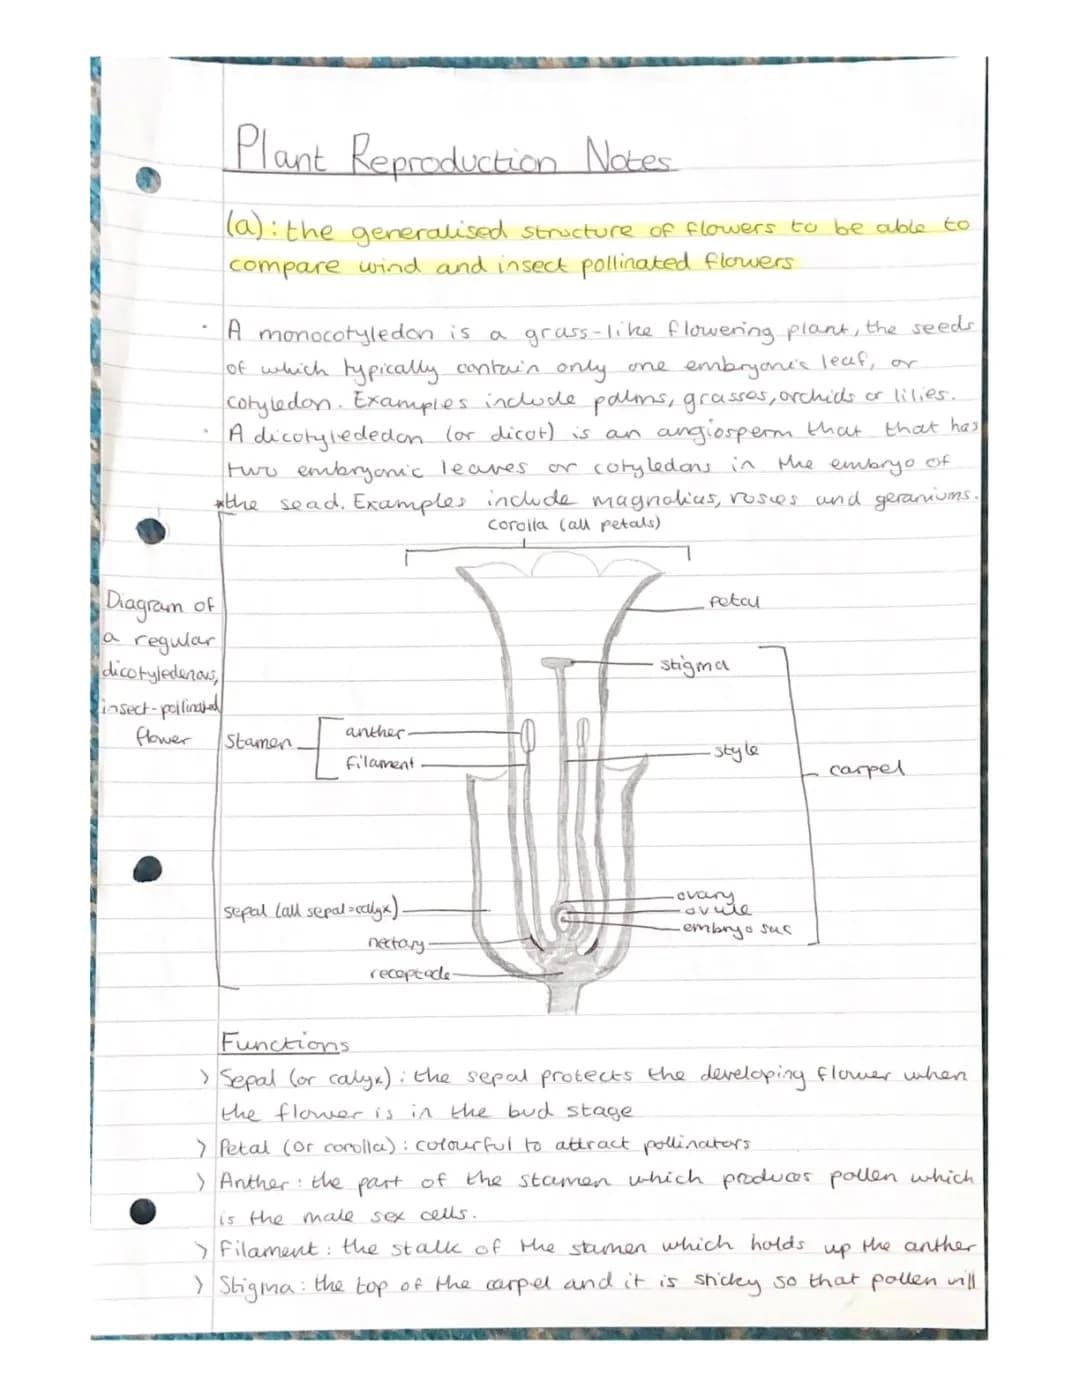 Plant Reproduction Notes
(a): the generalised structure of flowers to be able to
compare wind and insect pollinated flowers
· A monocotyledon is a grass-like flowering plant, the seeds
of which typically contain only one embryonic leaf, or
cotyledon. Examples include palms, grasses, orchids or lilies.
· A dicotylededon (or dicot) is an angiosperm that that has
two embryonic leaves or cotyledons in the embryo of
*the sead. Examples include magnolias, roses and geraniums.
corolla (all petals)
Diagram of
a regular
dicotyledenous,
insect-pollinated
flower
petal
stigma
Stamen
anther
filament
style
carpel
sepal (all sepal=calyx)
ovary
ovule
embryo sac
nectary
receptacle
Functions
> Sepal (or calyx): the sepal protects the developing flower when
the flower is in the bud stage
> Petal (or corolla): colourful to attract pollinators
> Anther: the part of the stamen which produces pollen which
is the male sex cells.
> Filament: the stalk of the stamen which holds up the anther
> Stigma: the top of the carpel and it is sticky so that pollen will